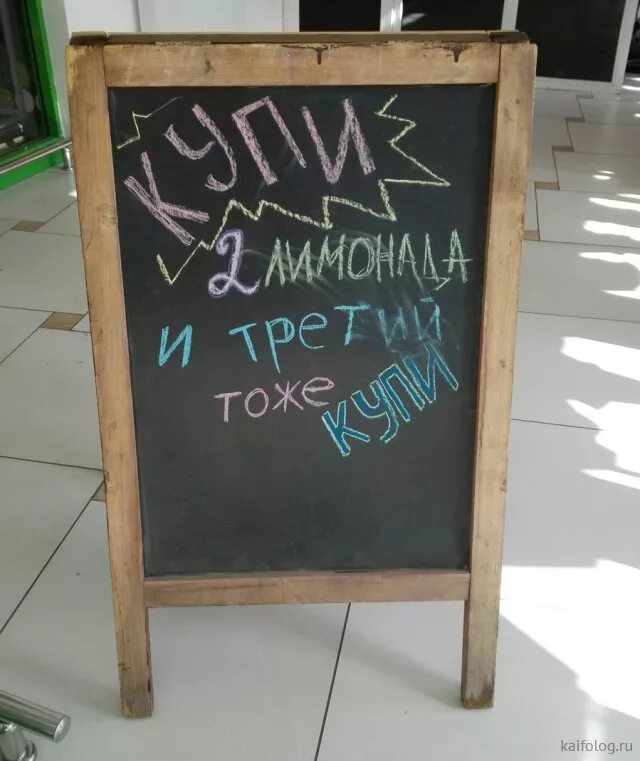 КУПИ
2 ЛИМОНАДА
И ТРЕТИЙ
ТОЖЕ КУПИ
kaifolog.ru